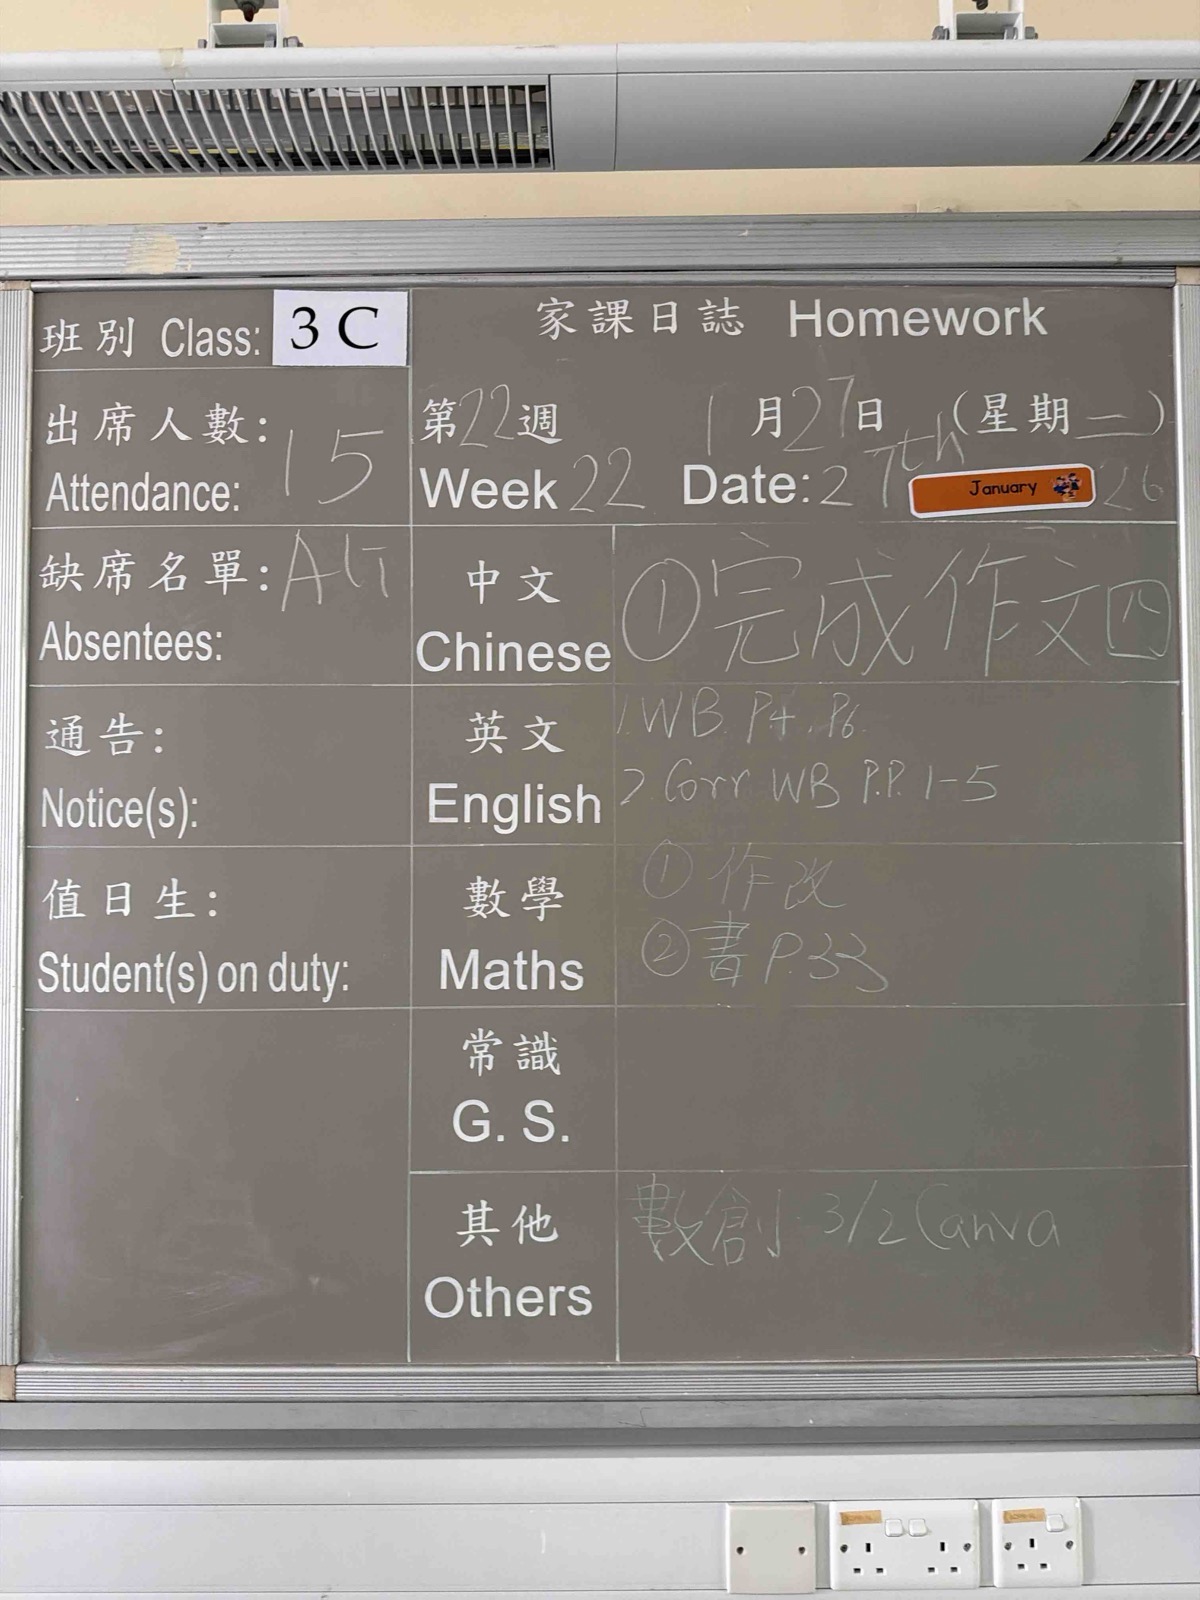 班別 Class: 3 C
出席人數: 15
Attendance:
缺席名單:
Absentees:
通告:
Notice(s):
值日生:
Student(s) on duty:
家課日誌 Homework
第22週 1月27日 (星期二)
Week 22 Date: 27th January 26
中文
Chinese
①完成作文四
英文
English
1. WB. P4, P6.
2. Corr. WB P.P. 1-5
數學
Maths
① 作改
② 書 P.33
常識
G. S.
其他
Others
數創 3/2 Canva